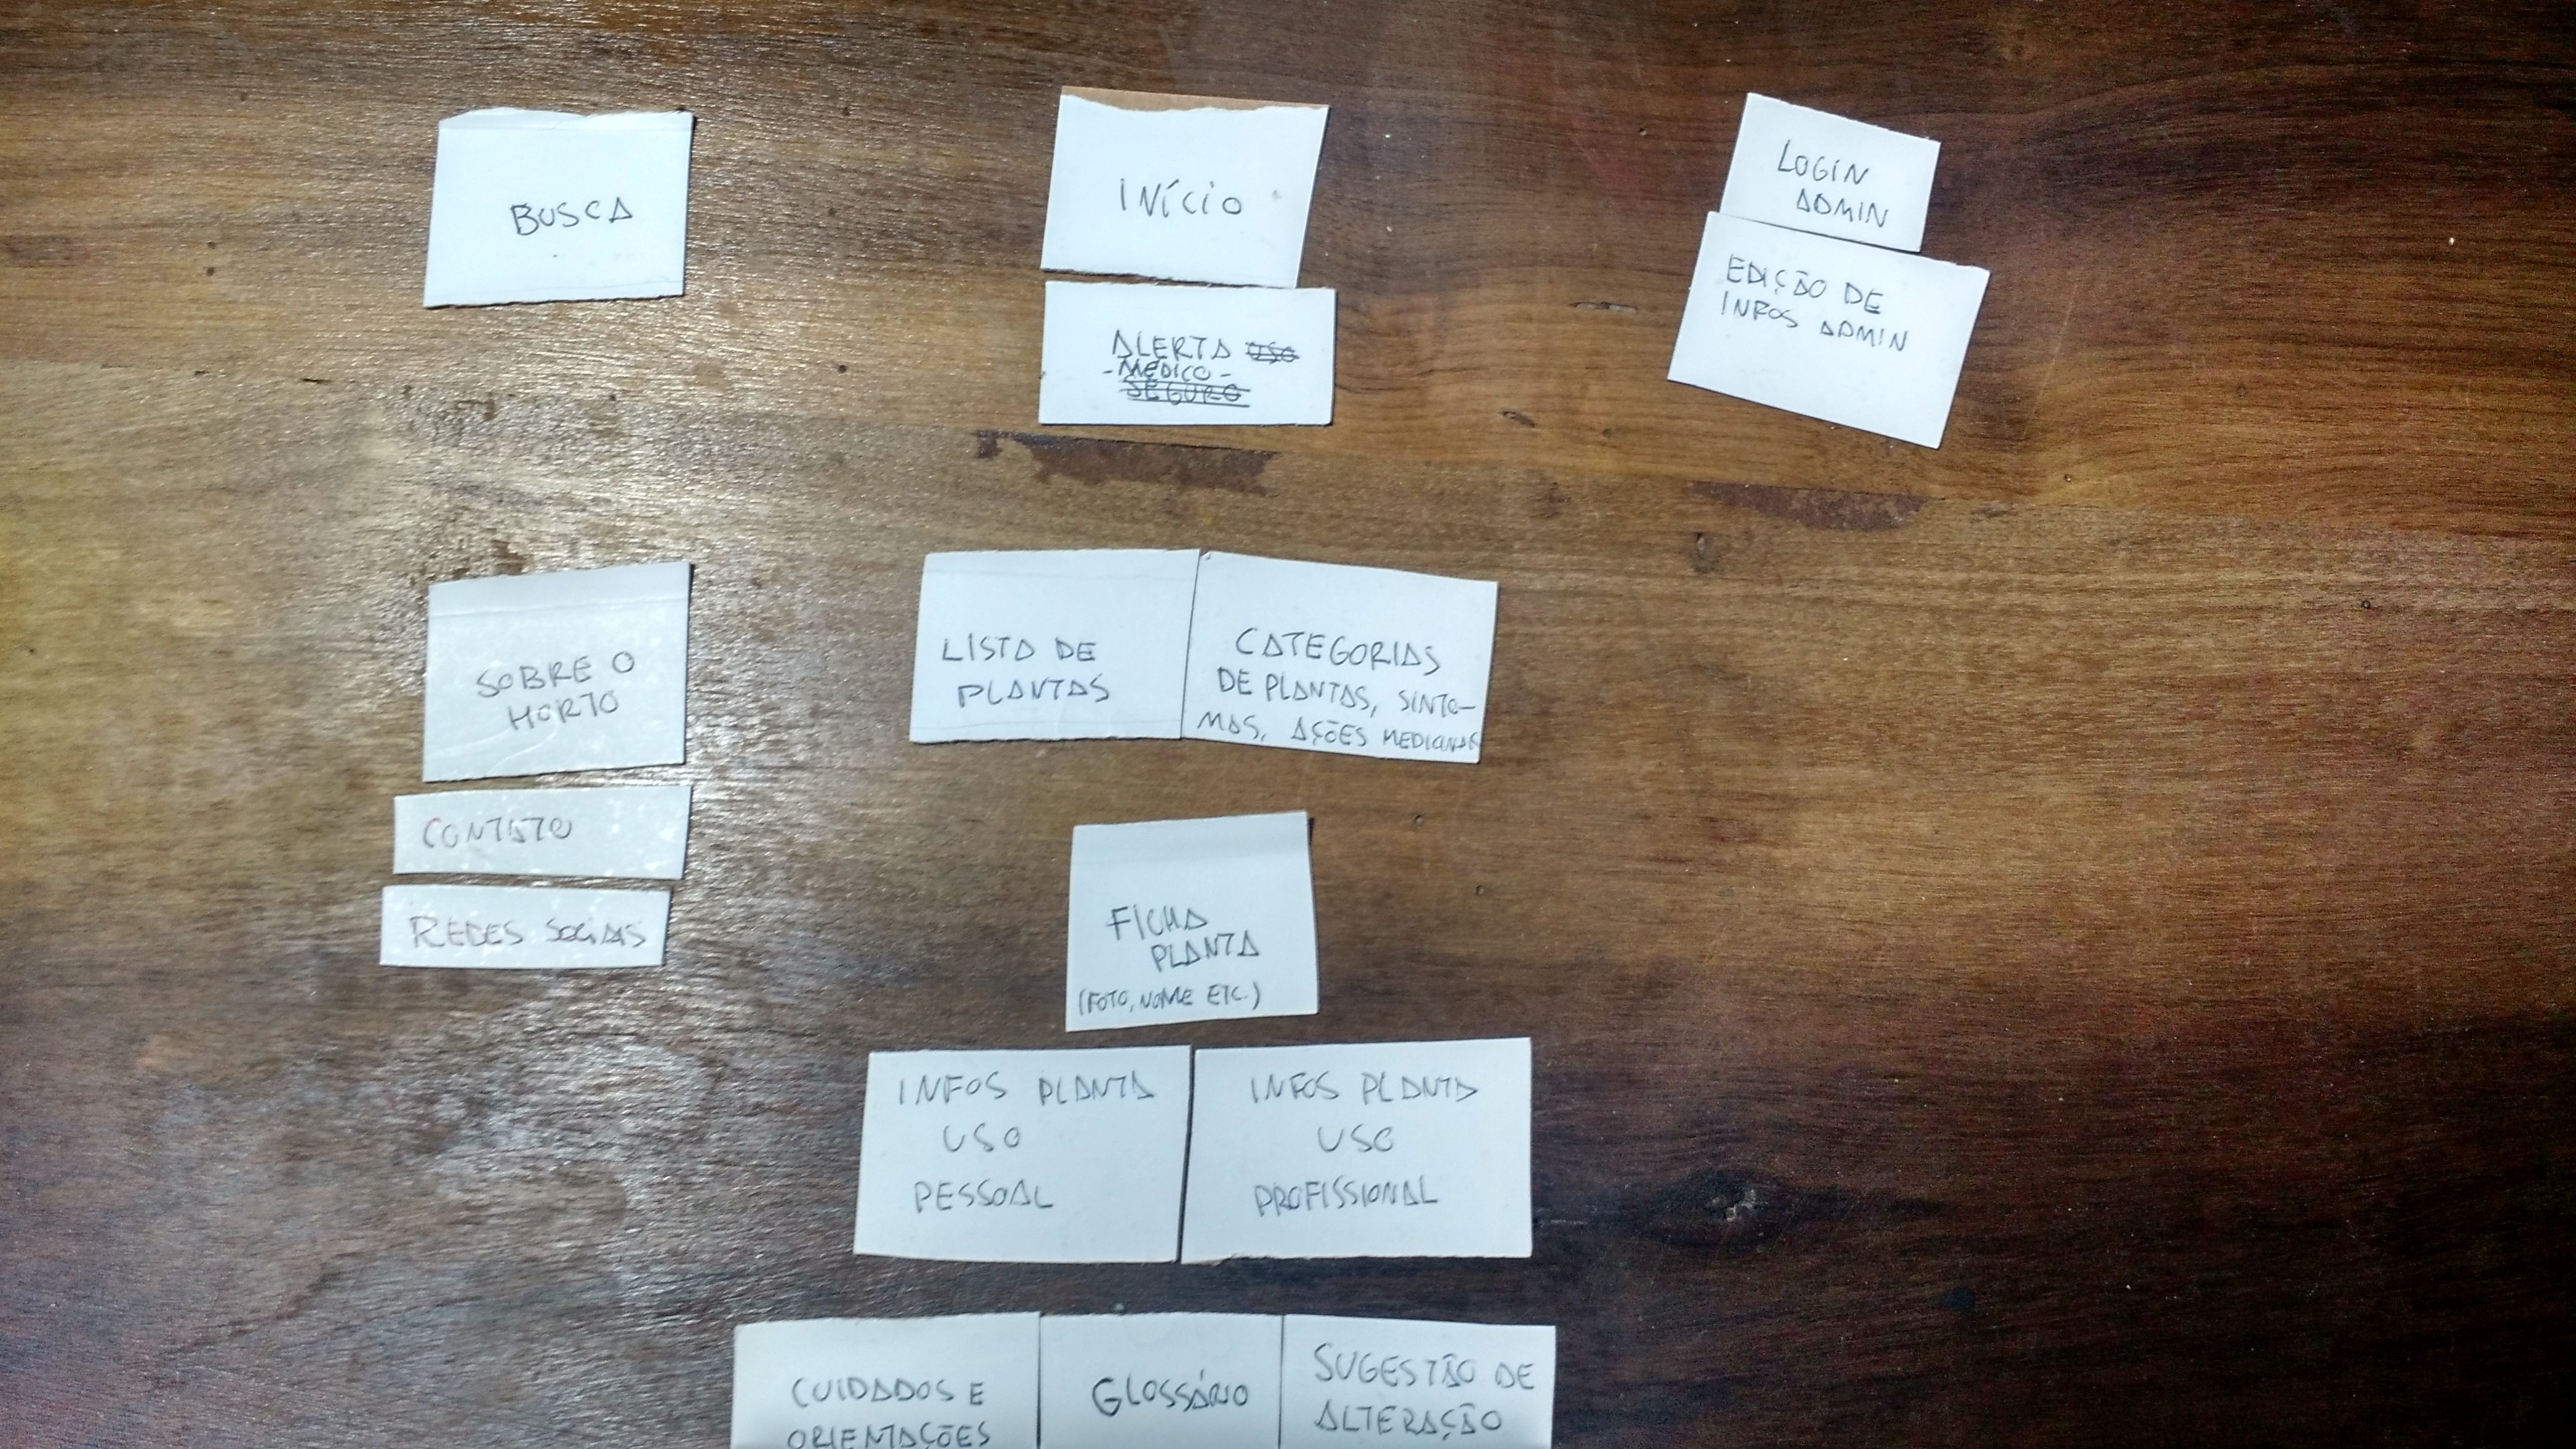 BUSCA
INÍCIO
ALERTA USO
-MÉDICO-
SEGURO
LOGIN
ADMIN
EDIÇÃO DE
INFOS ADMIN
SOBRE O
HORTO
CONTATO
REDES SOCIAIS
LISTA DE
PLANTAS
CATEGORIAS
DE PLANTAS, SINTO-
MAS, AÇÕES MEDICINAIS
FICHA
PLANTA
(FOTO, NOME ETC.)
INFOS PLANTA
USO
PESSOAL
INFOS PLANTA
USO
PROFISSIONAL
CUIDADOS E
ORIENTAÇÕES
GLOSSÁRIO
SUGESTÃO DE
ALTERAÇÃO